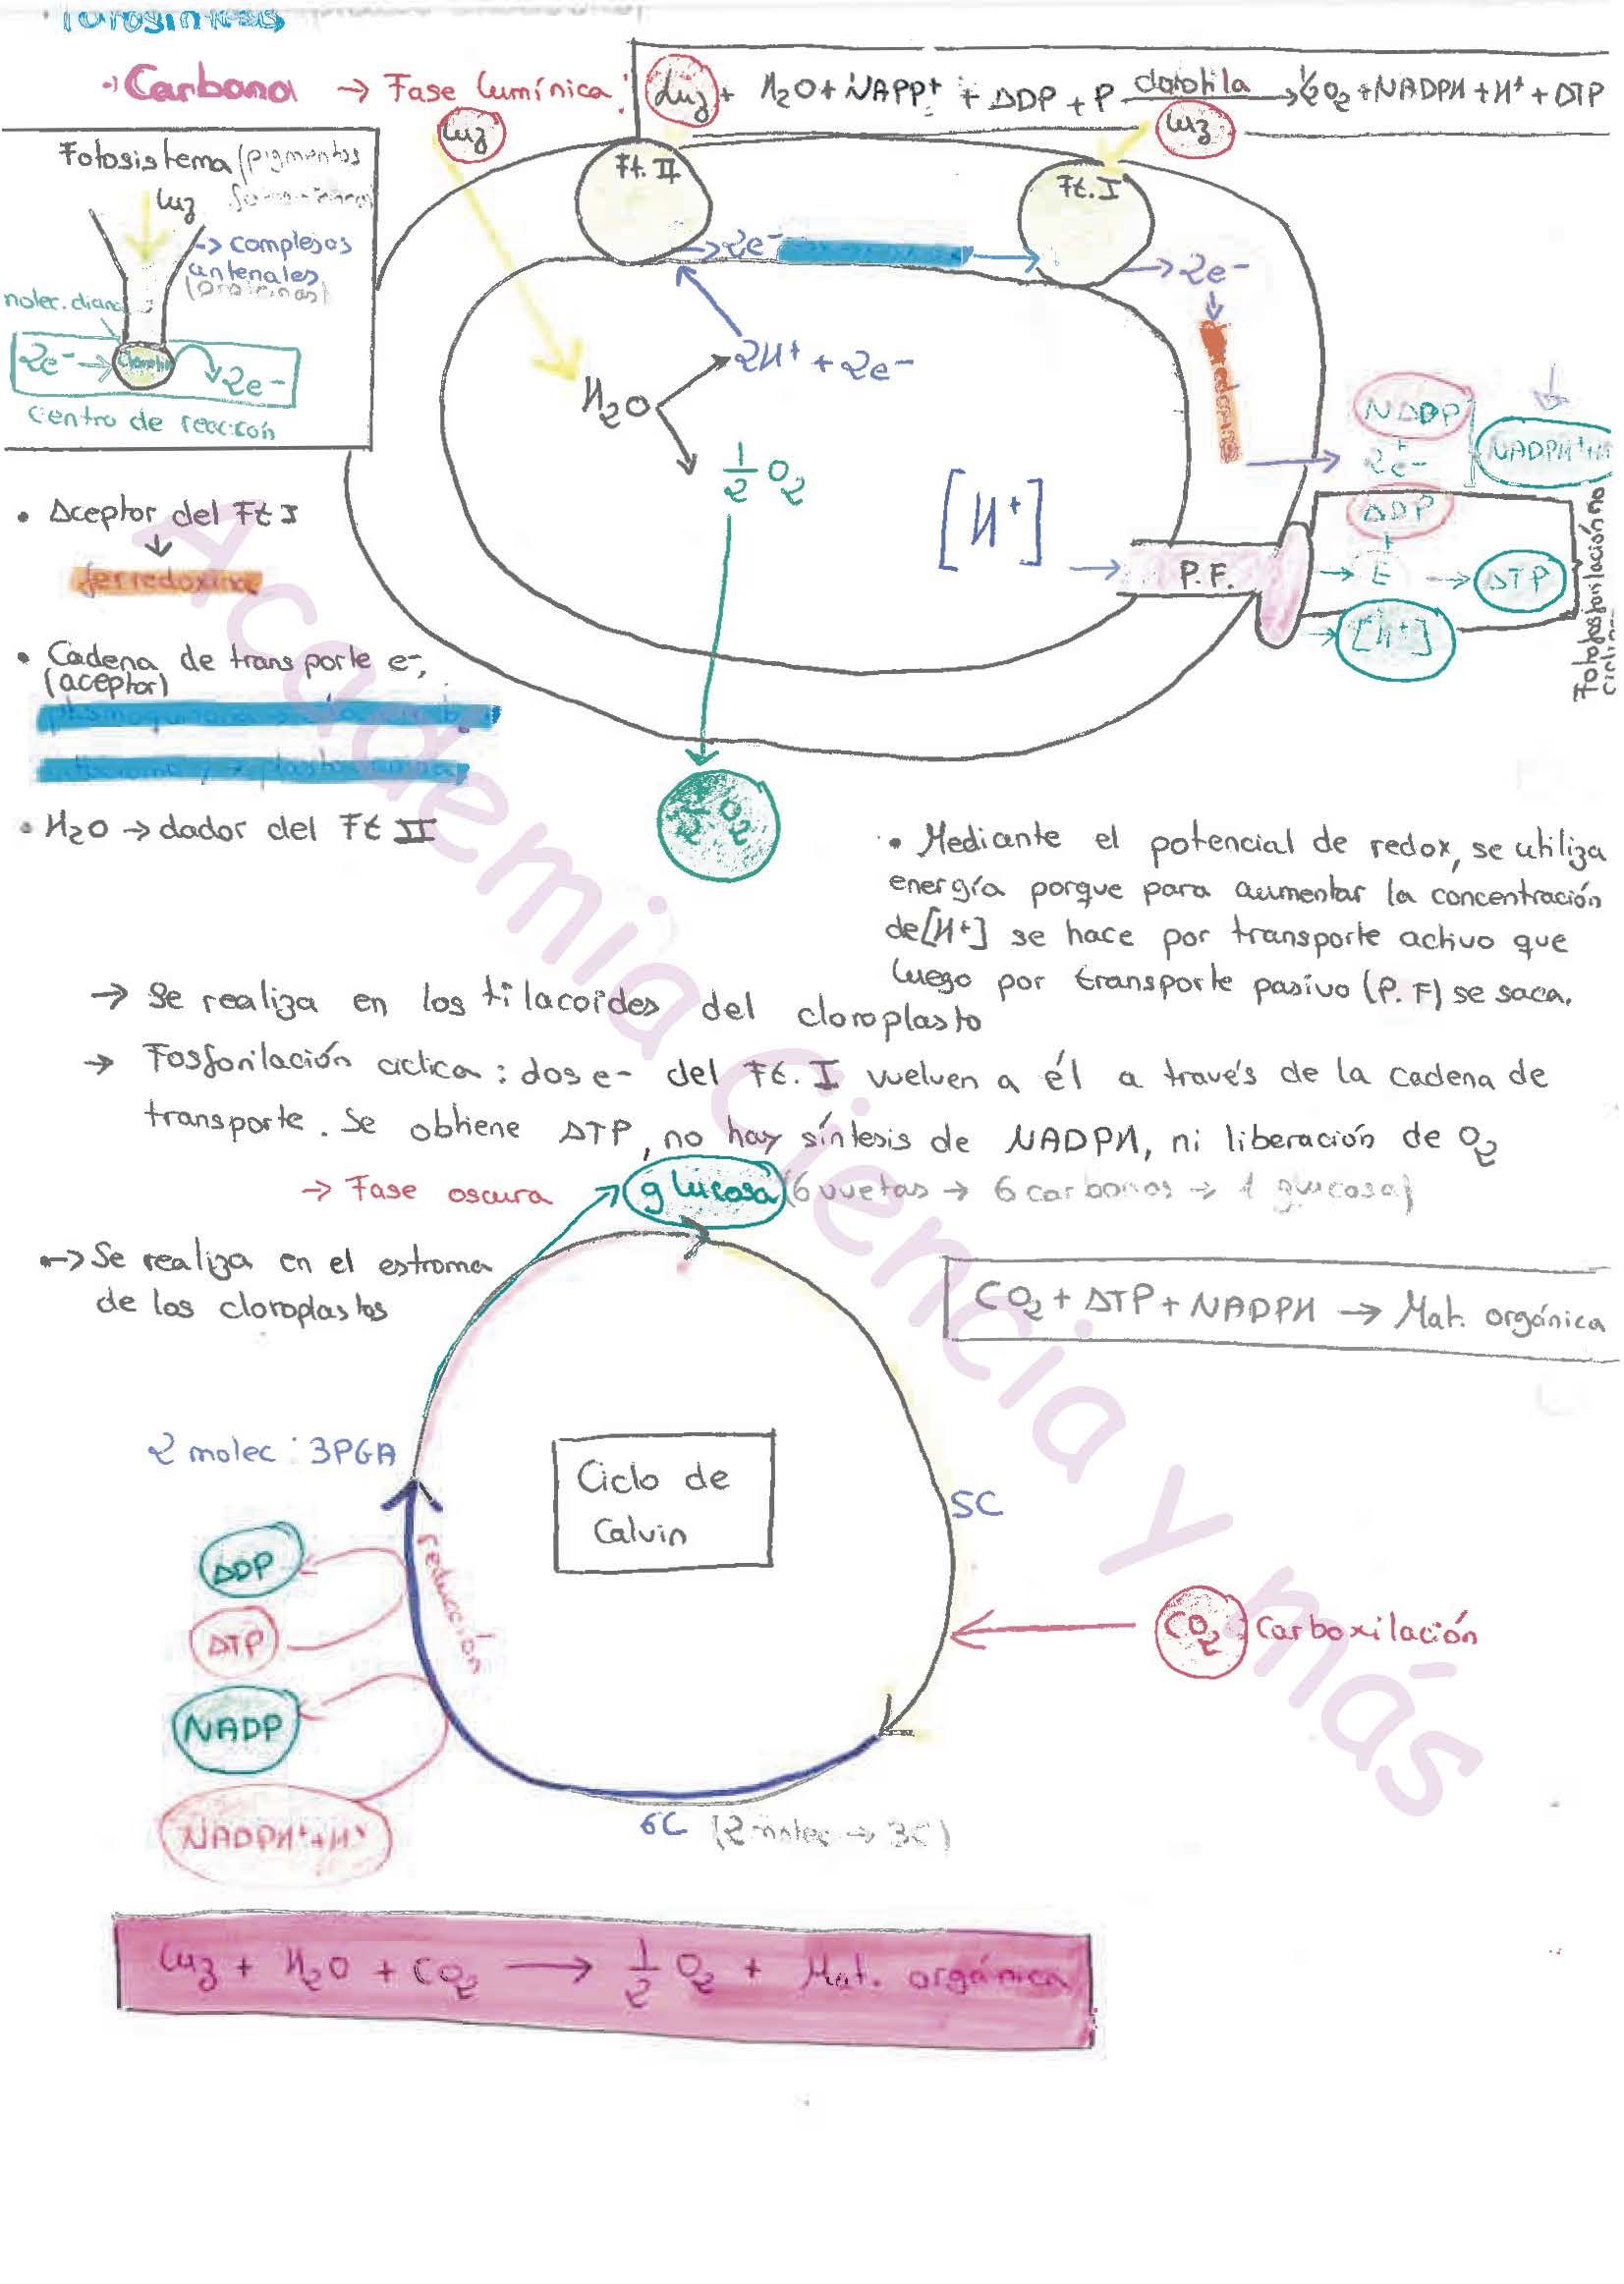 Fotosíntesis
Carbono → Fase lumínica:
Luz + H2O + NAPP+ + ADP + P clorofila → ½O2 + NADPH + H+ + ATP
Luz
Luz
Fotosistema (pigmentos
Luz
→ complejos
antenales
(proteinas)
molec. diana
2e- → Clorofila 2e-
centro de reacción
Ft. II
→ 2e-
Ft. I
→ 2e-
H2O
2H+ + 2e-
½ O2
½ O2
[H+]
→ P.F.
NADP
+
2e-
NADPH+H
ADP
+
→ E → ATP
→ [H+]
Fotofosforilación no
• Aceptor del Ft I
↓
ferredoxina
• Cadena de transporte e-,
(aceptor)
• H2O → dador del Ft II
• Mediante el potencial de redox, se utiliza
energía porque para aumentar la concentración
de [H+] se hace por transporte activo que
luego por transporte pasivo (P. F) se saca.
→ Se realiza en los tilacoides del cloroplasto
→ Fosforilación ciclica: dos e- del Ft. I vuelven a él a través de la cadena de
transporte. Se obtiene ATP, no hay síntesis de NADPH, ni liberación de O2
→ Fase oscura
glucosa (6 vueltas → 6 carbonos → 1 glucosa)
→ Se realiza en el estroma
de los cloroplastos
CO2 + ATP + NADPH → Mat. orgánica
2 molec: 3PGA
Ciclo de
Calvin
5C
reducción
ADP
ATP
NADP
NADPH+ + H+
CO2 Carboxilación
6C (2 molec → 3C)
Luz + H2O + CO2 → ½ O2 + Mat. orgánica
Academia Ciencia y más